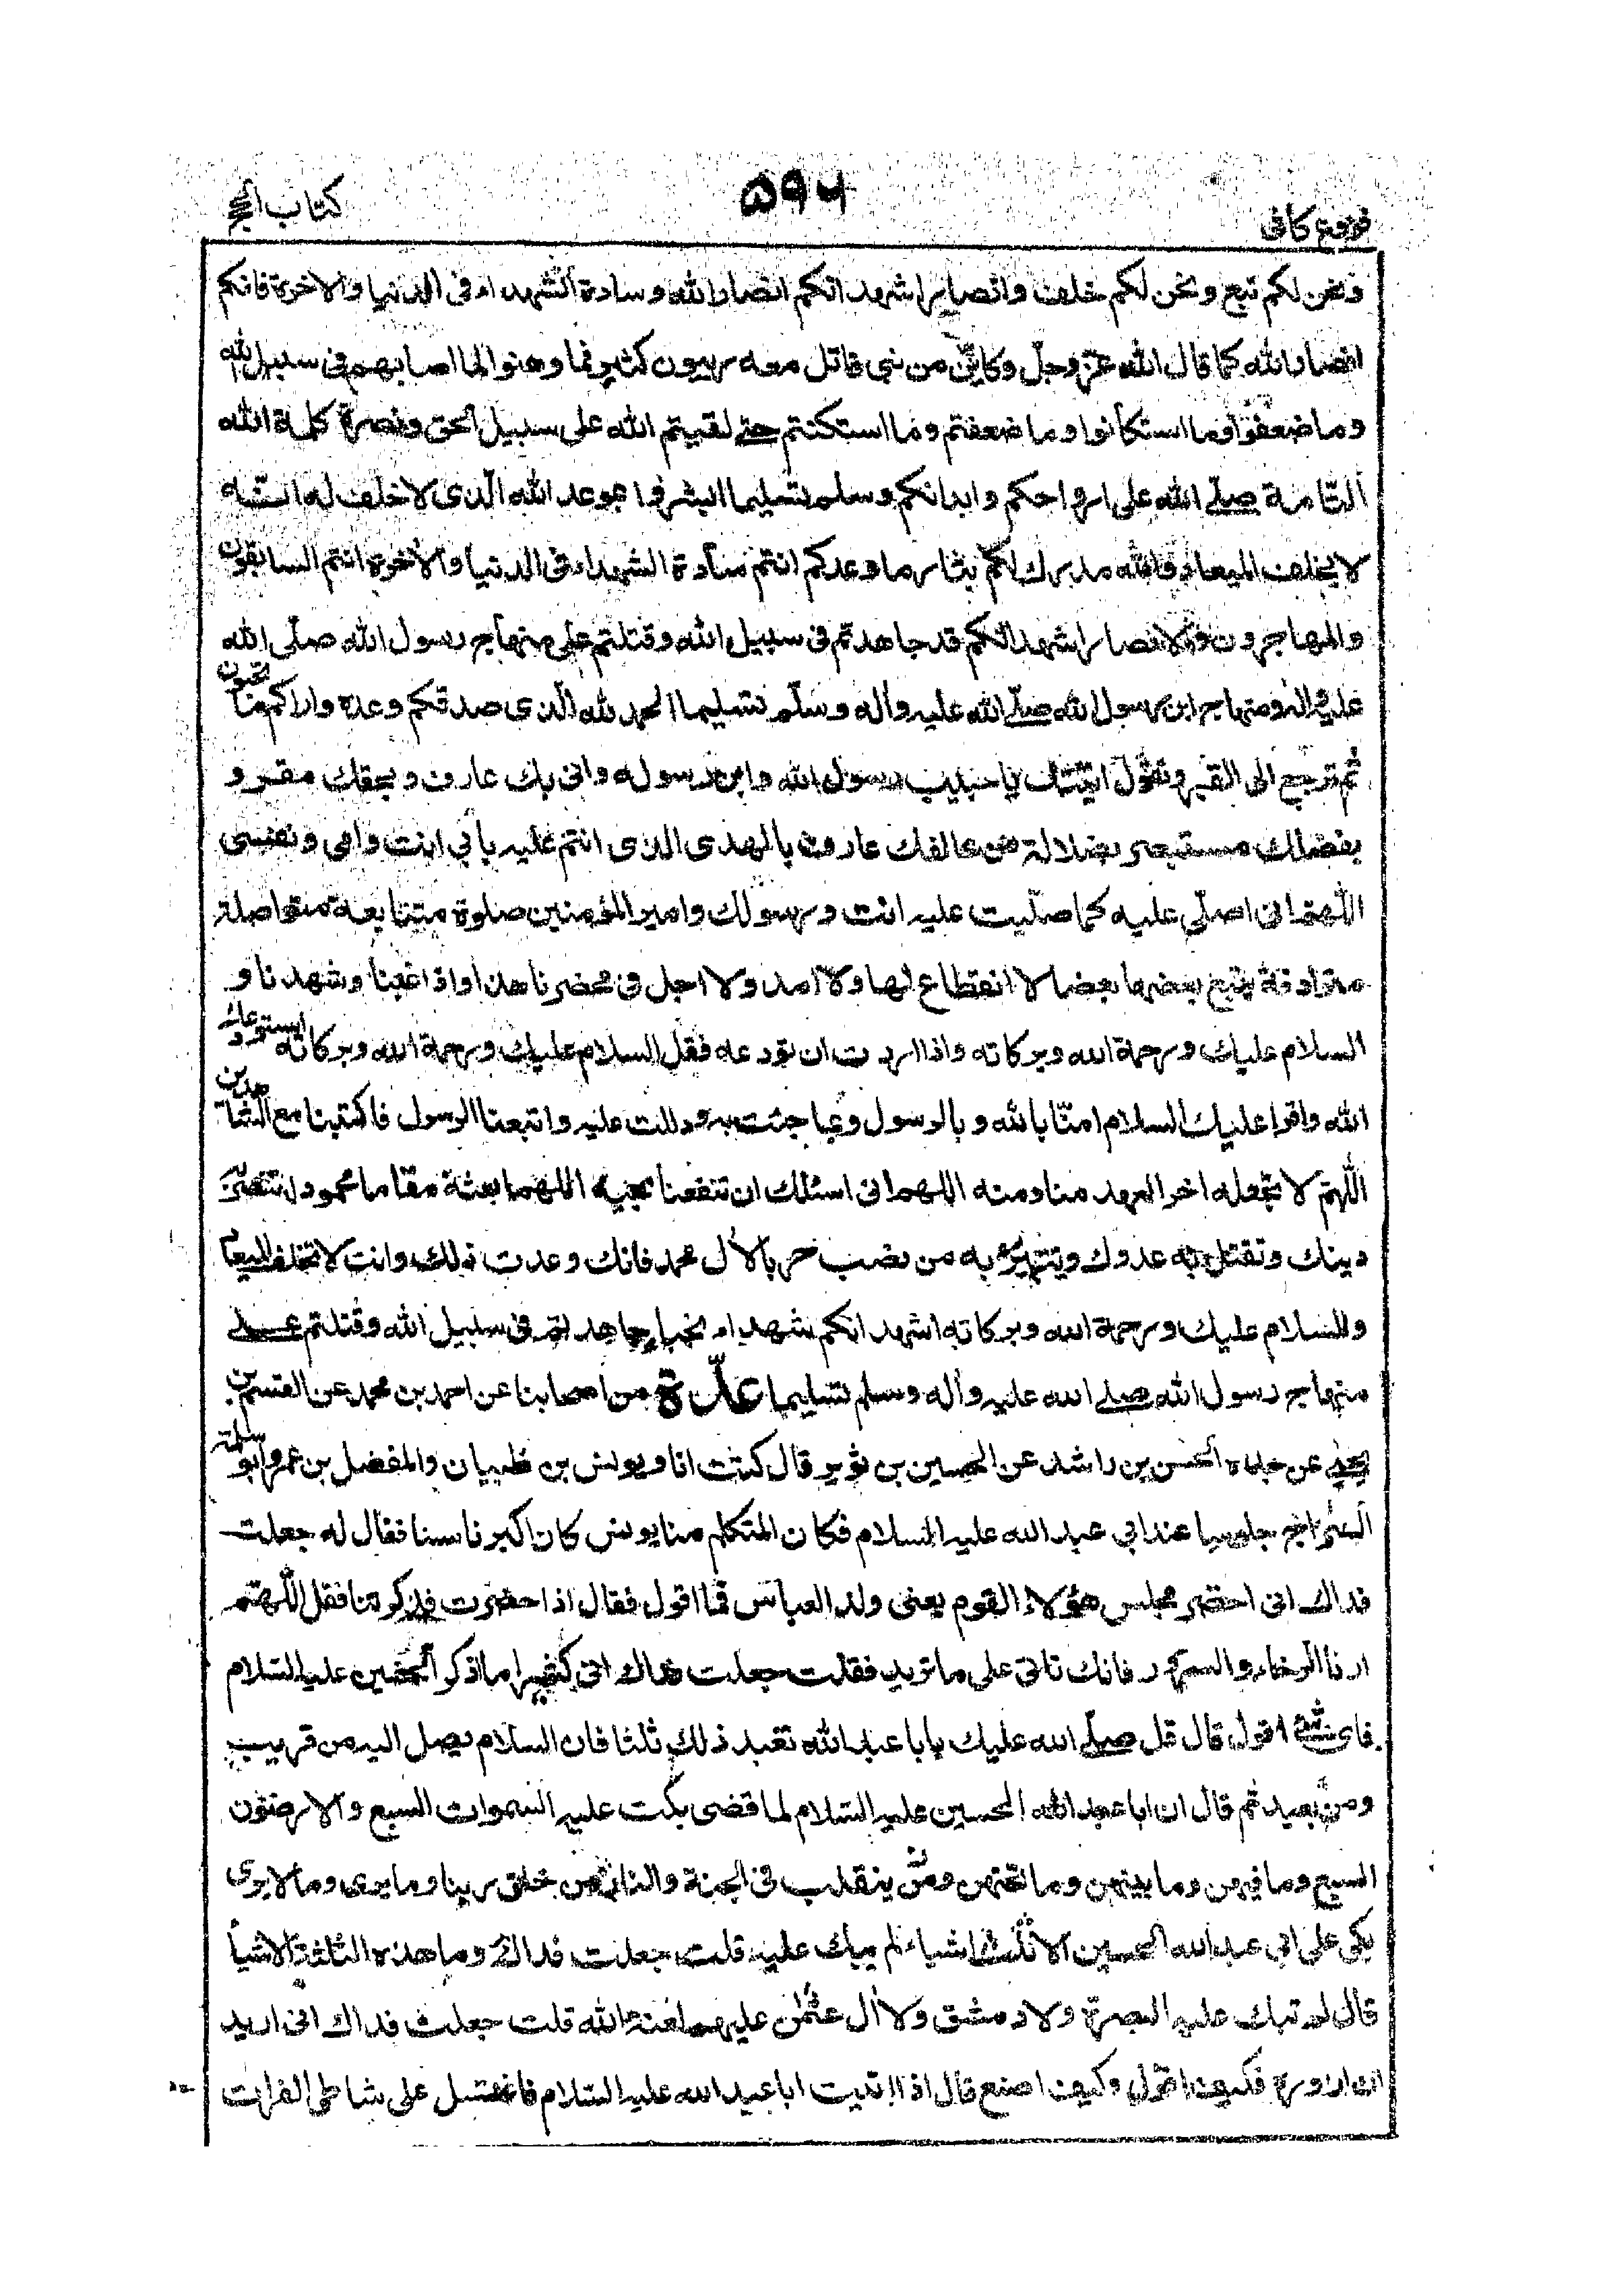 کتاب الحج
۵۹۶
فروع کافی
فنحن لكم تبع ونحن لكم خلف وانصار اشهد انكم انصار الله وسادة الشهداء فى الدنيا والآخرة فانكم
انصار الله كما قال الله عزّ وجلّ وكأيّن من نبى قاتل معه ربيون كثير فما وهنوا لما اصابهم فى سبيل الله
وما ضعفوا وما استكانوا وما ضعفتم وما استكنتم حتى لقيتم الله على سبيل الحق ونصرة كلمة الله
التامة صلى الله على ارواحكم وابدانكم وسلم تسليما ابشروا بموعد الله الّذى لا خلف له انّه
لا يخلف الميعاد فالله مدرك لكم بثار ما وعدكم انتم سادة الشهداء فى الدنيا والآخرة انتم السابقون
والمهاجرون والانصار اشهد انكم قد جاهدتم فى سبيل الله وقتلتم على منهاج رسول الله صلّى الله
عليه وآله ومنهاج ابن رسول الله صلّى الله عليه وآله وسلّم تسليما الحمد لله الّذى صدقكم وعده واراكم ما تحبون
ثم ترجع الى القبر وتقول اتيتك يا حبيب رسول الله وابن رسوله وانى بك عارف وبحقك مقر و
بفضلك مستبصر بضلالة من خالفك عارف بالهدى الذى انتم عليه بأبى انت وامى ونفسى
اللّهمّ انى اصلّى عليه كما صلّيت عليه انت ورسولك وامير المؤمنين صلوة متتابعة متواصلة
مترادفة يتبع بعضها بعضا لا انقطاع لها ولا أمد ولا اجل فى محضرنا هذا واذا غبنا وشهدنا و
السلام عليك ورحمة الله وبركاته واذا اردت ان تودعه فقل السلام عليك ورحمة الله وبركاته استودعك
الله واقرا عليك السلام امنّا بالله وبالرسول وبما جئت به ودللت عليه واتبعنا الرسول فاكتبنا مع الشاهدين
اللّهمّ لا تجعله اخر العهد منا ومنه اللهم انى اسئلك ان تنفعنا بحبه اللهم ابعثه مقاما محمودا تنتصر به
دينك وتقتل به عدوك وتبير به من نصب حربا لآل محمد فانك وعدت ذلك وانت لا تخلف الميعاد
والسلام عليك ورحمة الله وبركاته اشهد انكم شهداء نجباء جاهدتم فى سبيل الله وقتلتم على
منهاج رسول الله صلى الله عليه وآله وسلم تسليما عدّة من اصحابنا عن احمد بن محمد عن القسم بن
يحيى عن جده الحسن بن راشد عن الحسين بن ثوير قال كنت انا ويونس بن ظبيان والمفضل بن عمر وابو سلمة
السراج جلوسا عند ابى عبد الله عليه السلام فكان المتكلم منا يونس كان اكبرنا سنا فقال له جعلت
فداك انى احضر مجلس هؤلاء القوم يعنى ولد العباس فما اقول فقال اذا حضرت فذكرتنا فقل اللّهمّ
ارنا الرخاء والسرور فانك تاتى على ما تريد فقلت جعلت فداك انى كثيرا ما اذكر الحسين عليه السّلام
فاى شئ اقول قال قل صلّى الله عليك يا با عبد الله تعيد ذلك ثلثا فان السلام يصل اليه من قريب
ومن بعيد ثم قال ان ابا عبد الله الحسين عليه السّلام لما قضى بكت عليه السموات السبع والارضون
السبع وما فيهن وما بينهن وما تحتهن ومن ينقلب فى الجنة والنار من خلق ربنا وما يرى وما لا يرى
بكى على ابى عبد الله الحسين الا ثلثة اشياء لم تبك عليه قلت جعلت فداك وما هذه الثلثة الاشياء
قال لم تبك عليه البصرة ولا دمشق ولا آل عثمن عليهم لعنة الله قلت جعلت فداك انى اريد
ان ازوره فكيف اقول وكيف اصنع قال اذا اتيت ابا عبد الله عليه السّلام فاغتسل على شاطى الفرات